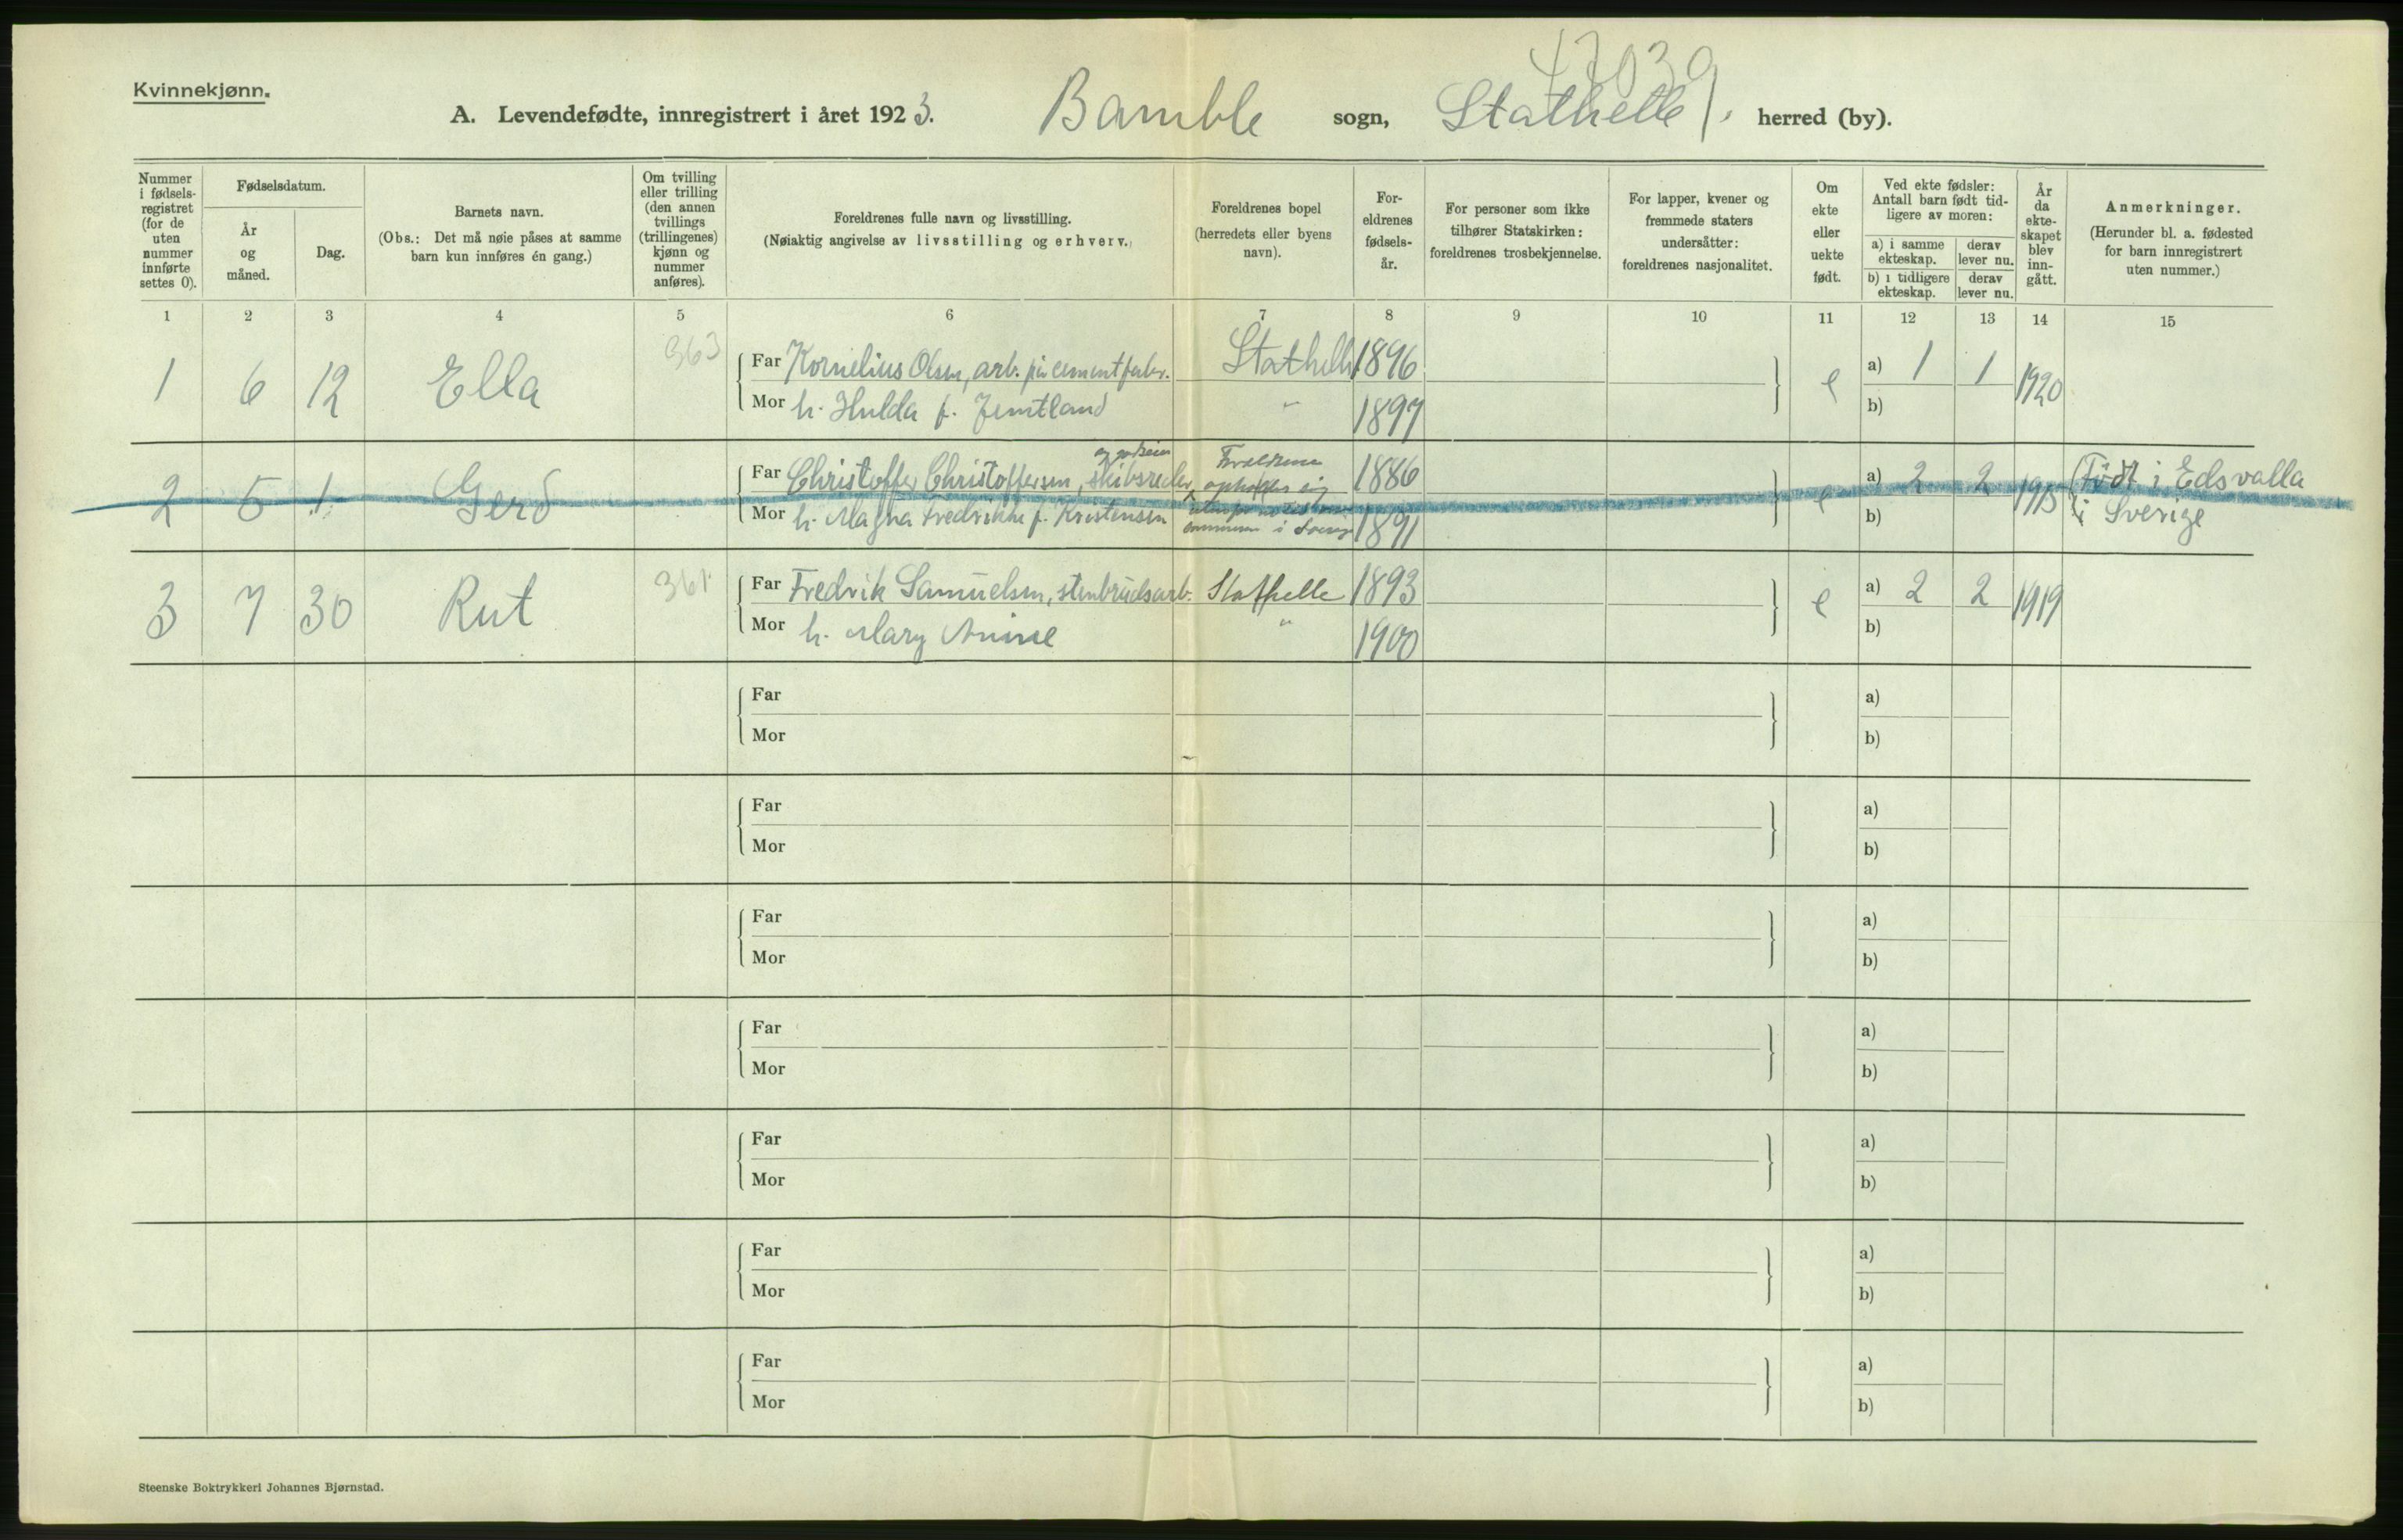 Kvinnekjønn.
A. Levendefødte, innregistrert i året 1923. Bamble sogn, Stathelle herred (by).
Nummer i fødsels-registret (for de uten nummer innførte settes 0).
Fødselsdatum.
År og måned.
Dag.
Barnets navn.
(Obs.: Det må nøie påses at samme barn kun innføres én gang.)
Om tvilling eller trilling (den annen tvillings (trillingenes) kjønn og nummer anføres).
Foreldrenes fulle navn og livsstilling.
(Nøiaktig angivelse av livsstilling og erhverv.)
Foreldrenes bopel (herredets eller byens navn).
For-eldrenes fødsels-år.
For personer som ikke tilhører Statskirken: foreldrenes trosbekjennelse.
For lapper, kvener og fremmede staters undersåtter: foreldrenes nasjonalitet.
Om ekte eller uekte født.
Ved ekte fødsler: Antall barn født tid-ligere av moren:
a) i samme ekteskap.
derav lever nu.
b) i tidligere ekteskap.
derav lever nu.
År da ekte-skapet blev inn-gått.
Anmerkninger.
(Herunder bl. a. fødested for barn innregistrert uten nummer.)
1 2 3 4 5 6 7 8 9 10 11 12 13 14 15
1 6 12 Ella 363 Far Kornelius Olsen, arb. på cementfabr. Stathelle 1896 e a) 1 1 1920
Mor h. Hulda f. Jemtland " 1897 b)
2 5 1 Gerd Far Christoffer Christoffersen, skibsreder Foreldrene opholder sig 1886 e a) 2 2 1915 (Født i Edsvalla
Mor h. Magna Fredrikke f. Kristensen i 1891 b) i Sverige
3 7 30 Rut 361 Far Fredrik Samuelsen, stenbrudsarb. Stathelle 1893 e a) 2 2 1919
Mor h. Mary " 1900 b)
Far a)
Mor b)
Far a)
Mor b)
Far a)
Mor b)
Far a)
Mor b)
Far a)
Mor b)
Far a)
Mor b)
Far a)
Mor b)
Steenske Boktrykkeri Johannes Bjørnstad.